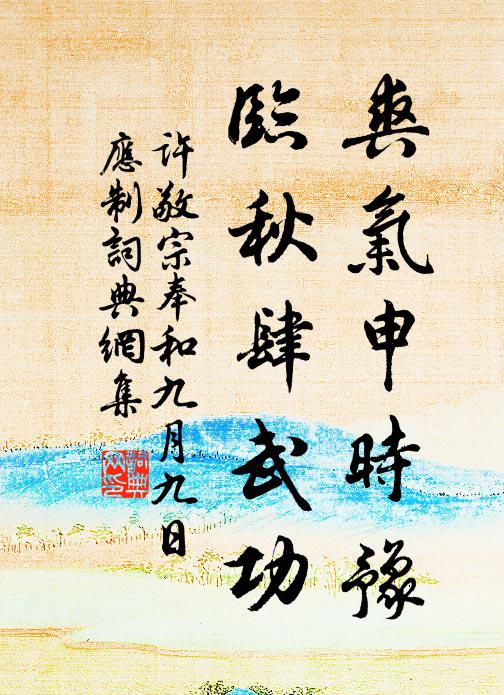 爽氣申時豫
臨秋肆武功
許敬宗奉和九月九日
應制詞典網集